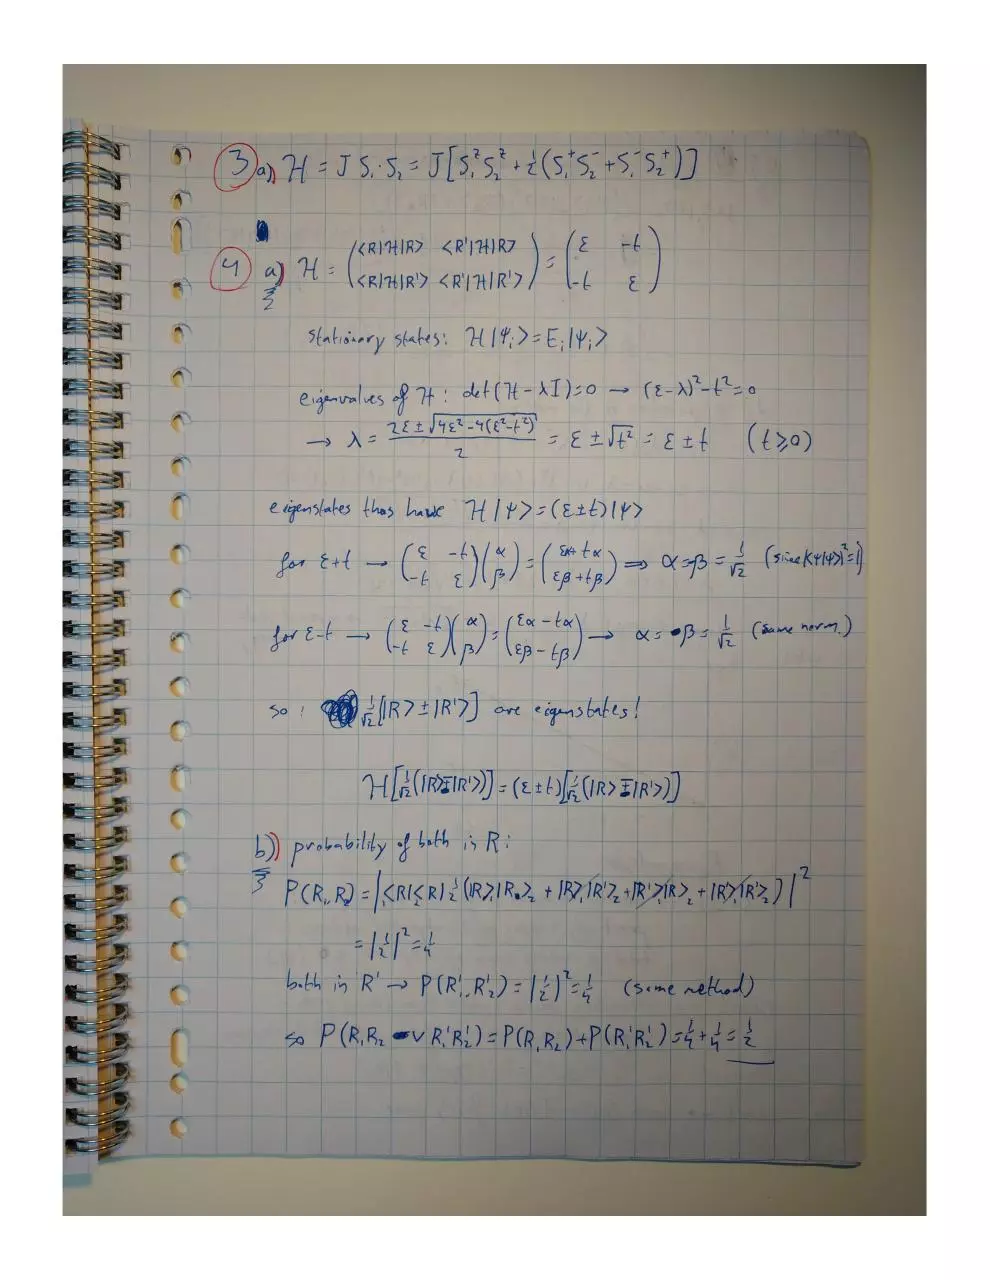 3 a) H = J S₁·S₂ = J[S₁ᶻS₂ᶻ + ½(S₁⁺S₂⁻ + S₁⁻S₂⁺)]
4 a) H = (<R|H|R> <R'|H|R> <R|H|R'> <R'|H|R'>) = (ε -t -t ε)
stationary states: H|Ψᵢ> = Eᵢ|Ψᵢ>
eigenvalues of H: det(H - λI) = 0 → (ε-λ)² - t² = 0
→ λ = (2ε ± √(4ε² - 4(ε² - t²)))/2 = ε ± √t² = ε ± t (t ≥ 0)
eigenstates thus have H|Ψ> = (ε ± t)|Ψ>
for ε+t → (ε -t -t ε)(α β) = (εα + tα εβ + tβ) ⇒ α = -β = 1/√2 (since |<Ψ|Ψ>|² = 1)
for ε-t → (ε -t -t ε)(α β) = (εα - tα εβ - tβ) → α = β = 1/√2 (same norm.)
so: 1/√2 [|R> ± |R'>] are eigenstates!
H[1/√2 (|R> ∓ |R'>)] = (ε ± t)[1/√2 (|R> ∓ |R'>)]
b) probability of both in R:
P(R₁, R₂) = |₁<R|₂<R| ½ (|R>₁|R>₂ + |R>₁|R'>₂ + |R'>₁|R>₂ + |R'>₁|R'>₂)|²
= |½|² = ¼
both in R' → P(R'₁, R'₂) = |½|² = ¼ (same method)
so P(R₁R₂ ∨ R₁'R₂') = P(R₁R₂) + P(R₁'R₂') = ¼ + ¼ = ½